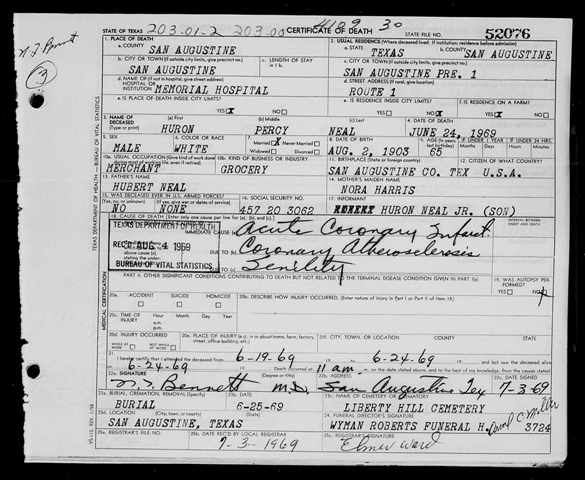 203-01-2 203.00 4129 30
STATE OF TEXAS CERTIFICATE OF DEATH STATE FILE NO. 52076
1. PLACE OF DEATH 2. USUAL RESIDENCE (Where deceased lived. If institution: residence before admission)
a. COUNTY SAN AUGUSTINE a. STATE TEXAS b. COUNTY SAN AUGUSTINE
b. CITY OR TOWN (If outside city limits, give precinct no.) c. LENGTH OF STAY c. CITY OR TOWN (If outside city limits, give precinct no.)
SAN AUGUSTINE SAN AUGUSTINE PRE. 1
d. NAME OF (If not in hospital, give street address) d. STREET ADDRESS (If rural, give location)
HOSPITAL OR INSTITUTION MEMORIAL HOSPITAL ROUTE 1
e. IS PLACE OF DEATH INSIDE CITY LIMITS? e. IS RESIDENCE INSIDE CITY LIMITS? f. IS RESIDENCE ON A FARM?
YES X NO YES NO X YES NO X
3. NAME OF DECEASED (Type or print) (a) First (b) Middle (c) Last 4. DATE OF DEATH
HURON PERCY NEAL JUNE 24, 1969
5. SEX 6. COLOR OR RACE 7. Married X Never Married Widowed Divorced 8. DATE OF BIRTH 9. AGE IF UNDER 1 YEAR IF UNDER 24 HRS.
MALE WHITE AUG. 2, 1903 65
10a. USUAL OCCUPATION 10b. KIND OF BUSINESS OR INDUSTRY 11. BIRTHPLACE (State or foreign country) 12. CITIZEN OF WHAT COUNTRY?
MERCHANT GROCERY SAN AUGUSTINE CO. TEX U.S.A.
13. FATHER'S NAME 14. MOTHER'S MAIDEN NAME
HUBERT NEAL NORA HARRIS
15. WAS DECEASED EVER IN U.S. ARMED FORCES? 16. SOCIAL SECURITY NO. 17. INFORMANT
NO NONE 457 20 3062 HURON NEAL JR. (SON)
18. CAUSE OF DEATH
IMMEDIATE CAUSE (a) Acute Coronary Infarct.
TEXAS DEPARTMENT OF HEALTH
REC'D AUG 4 1969
BUREAU OF VITAL STATISTICS
DUE TO (b) Coronary Atherosclerosis
DUE TO (c) Senility
PART II. OTHER SIGNIFICANT CONDITIONS CONTRIBUTING TO DEATH BUT NOT RELATED TO THE TERMINAL DISEASE CONDITION GIVEN IN PART I(a) 19. WAS AUTOPSY PERFORMED?
YES NO
20a. ACCIDENT SUICIDE HOMICIDE 20b. DESCRIBE HOW INJURY OCCURRED.
20c. TIME OF INJURY Hour Month, Day, Year a.m. p.m.
20d. INJURY OCCURRED 20e. PLACE OF INJURY 20f. CITY, TOWN, OR LOCATION COUNTY STATE
WHILE AT WORK NOT WHILE AT WORK
21. I hereby certify that I attended the deceased from 6-19-69 to 6-24-69 and last saw the deceased alive
on 6-24-69 Death occurred at 11 a.m. on the date stated above, and to the best of my knowledge, from the causes stated.
22a. SIGNATURE (Degree or title) 22b. ADDRESS 22c. DATE SIGNED
N. T. Bennett M.D. San Augustine Tex 7-3-69
23a. BURIAL, CREMATION, REMOVAL (Specify) 23b. DATE 23c. NAME OF CEMETERY OR CREMATORY
BURIAL 6-25-69 LIBERTY HILL CEMETERY
23d. LOCATION 24. FUNERAL DIRECTOR'S SIGNATURE
SAN AUGUSTINE, TEXAS WYMAN ROBERTS FUNERAL H. 3724
25a. REGISTRAR'S FILE NO. 25b. DATE REC'D BY LOCAL REGISTRAR 25c. REGISTRAR'S SIGNATURE
7-3-1969 Elmer Ward
TEXAS DEPARTMENT OF HEALTH — BUREAU OF VITAL STATISTICS
MEDICAL CERTIFICATION